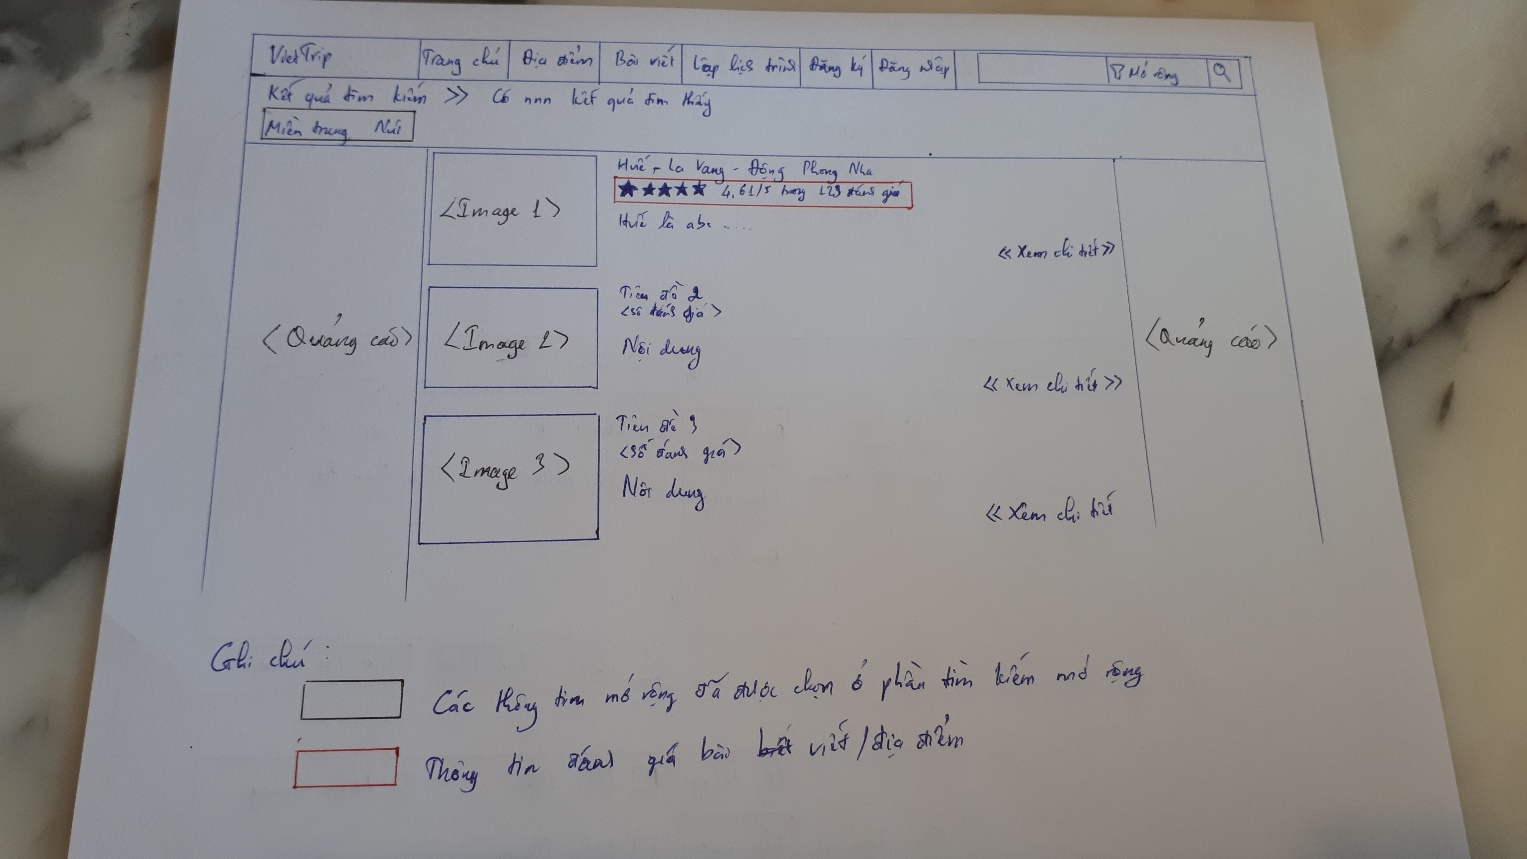 VietTrip Trang chủ Địa điểm Bài viết Lập lịch trình Đăng ký Đăng nhập Mở rộng
Kết quả tìm kiếm >> Có nnn kết quả tìm thấy
Miền trung Núi
<Image 1>
Huế - La Vang - Động Phong Nha
★★★★★ 4,61/5 trong 129 đánh giá
Huế là abc ....
<< Xem chi tiết >>
<Quảng cáo>
<Image 2>
Tiêu đề 2
<Số đánh giá>
Nội dung
<< Xem chi tiết >>
<Quảng cáo>
<Image 3>
Tiêu đề 3
<Số đánh giá>
Nội dung
<< Xem chi tiết
Ghi chú :
Các thông tin mở rộng đã được chọn ở phần tìm kiếm mở rộng
Thông tin đánh giá bài viết / địa điểm